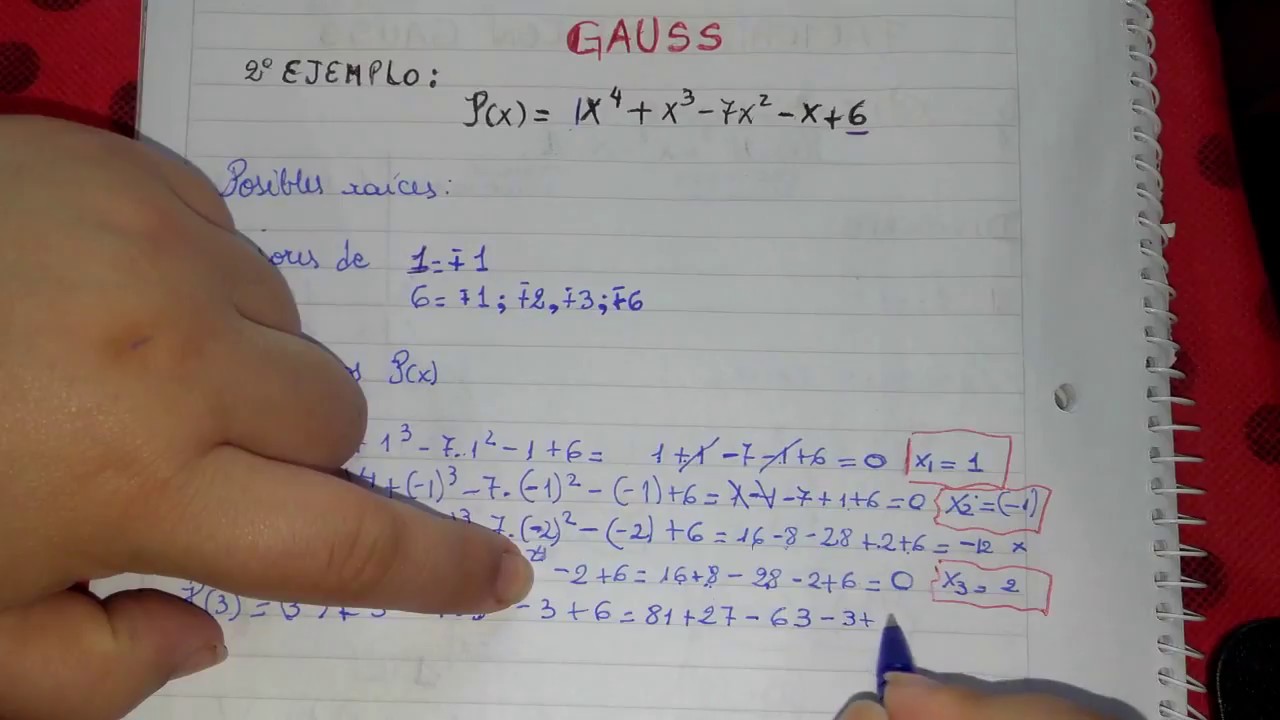 GAUSS
2° EJEMPLO:
P(x) = 1x⁴ + x³ - 7x² - x + 6
Posibles raíces:
de 1 = ∓1
6 = ∓1; ∓2, ∓3; ∓6
P(x)
1³ - 7.1² - 1 + 6 = 1 + 1 - 7 - 1 + 6 = 0 x₁ = 1
+ (-1)³ - 7.(-1)² - (-1) + 6 = 1 - 1 - 7 + 1 + 6 = 0 x₂ = (-1)
7.(-2)² - (-2) + 6 = 16 - 8 - 28 + 2 + 6 = -12 x
- 2 + 6 = 16 + 8 - 28 - 2 + 6 = 0 x₃ = 2
P(3) = - 3 + 6 = 81 + 27 - 63 - 3 +